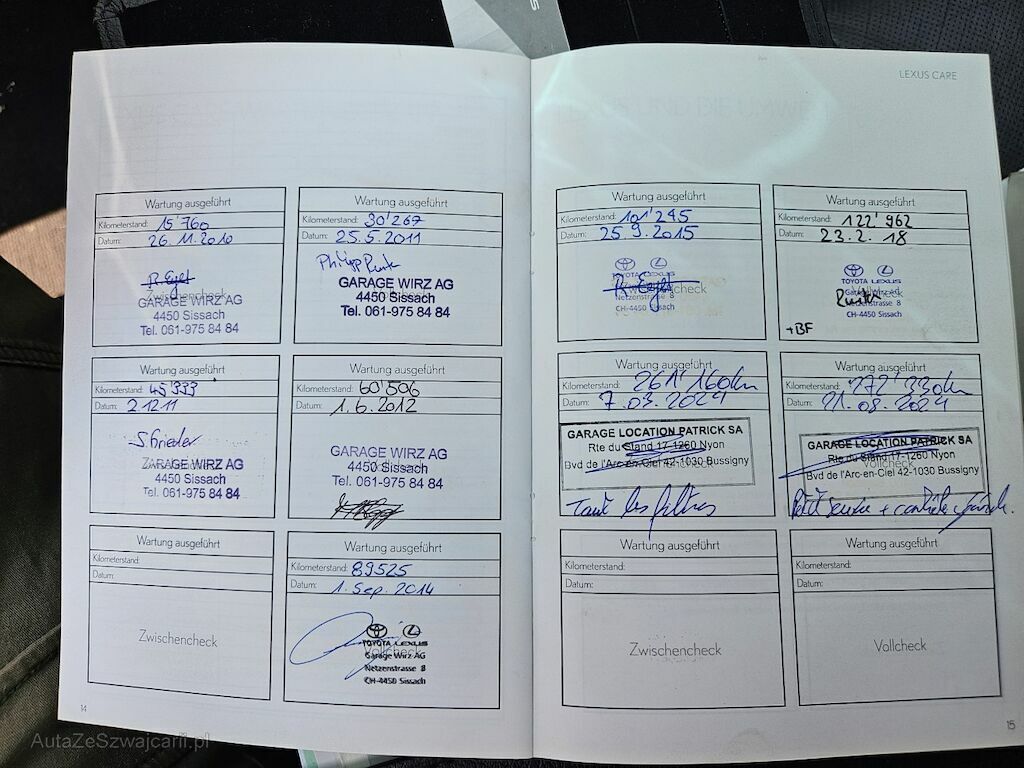 LEXUS CARE
Wartung ausgeführt
Kilometerstand: 15'760
Datum: 26.11.2010
Zwischencheck
GARAGE WIRZ AG
4450 Sissach
Tel. 061-975 84 84
Wartung ausgeführt
Kilometerstand: 30'267
Datum: 25.5.2011
GARAGE WIRZ AG
4450 Sissach
Tel. 061-975 84 84
Wartung ausgeführt
Kilometerstand: 45'333
Datum: 2.12.11
S. Grieder
GARAGE WIRZ AG
4450 Sissach
Tel. 061-975 84 84
Wartung ausgeführt
Kilometerstand: 60'506
Datum: 1.6.2012
GARAGE WIRZ AG
4450 Sissach
Tel. 061-975 84 84
Wartung ausgeführt
Kilometerstand:
Datum:
Zwischencheck
Wartung ausgeführt
Kilometerstand: 89525
Datum: 1. Sep. 2014
TOYOTA LEXUS
Vollcheck
Garage Wirz AG
Netzenstrasse 8
CH-4450 Sissach
14
Wartung ausgeführt
Kilometerstand: 101'245
Datum: 25.9.2015
TOYOTA LEXUS
Netzenstrasse 8
CH-4450 Sissach
Wartung ausgeführt
Kilometerstand: 122'962
Datum: 23.2.18
TOYOTA LEXUS
Garage Wirz AG
Vollcheck
Netzenstrasse 8
CH-4450 Sissach
+BF
Wartung ausgeführt
Kilometerstand: 261'160km
Datum: 7.03.2024
GARAGE LOCATION PATRICK SA
Rte du Stand 17-1260 Nyon
Bvd de l'Arc-en-Ciel 42-1030 Bussigny
Tout les filtres
Wartung ausgeführt
Kilometerstand: 272'330km
Datum: 21.08.2024
GARAGE LOCATION PATRICK SA
Rte du Stand 17-1260 Nyon
Vollcheck
Bvd de l'Arc-en-Ciel 42-1030 Bussigny
Petit service + contrôle
Wartung ausgeführt
Kilometerstand:
Datum:
Zwischencheck
Wartung ausgeführt
Kilometerstand:
Datum:
Vollcheck
15
AutaZeSzwajcarii.pl